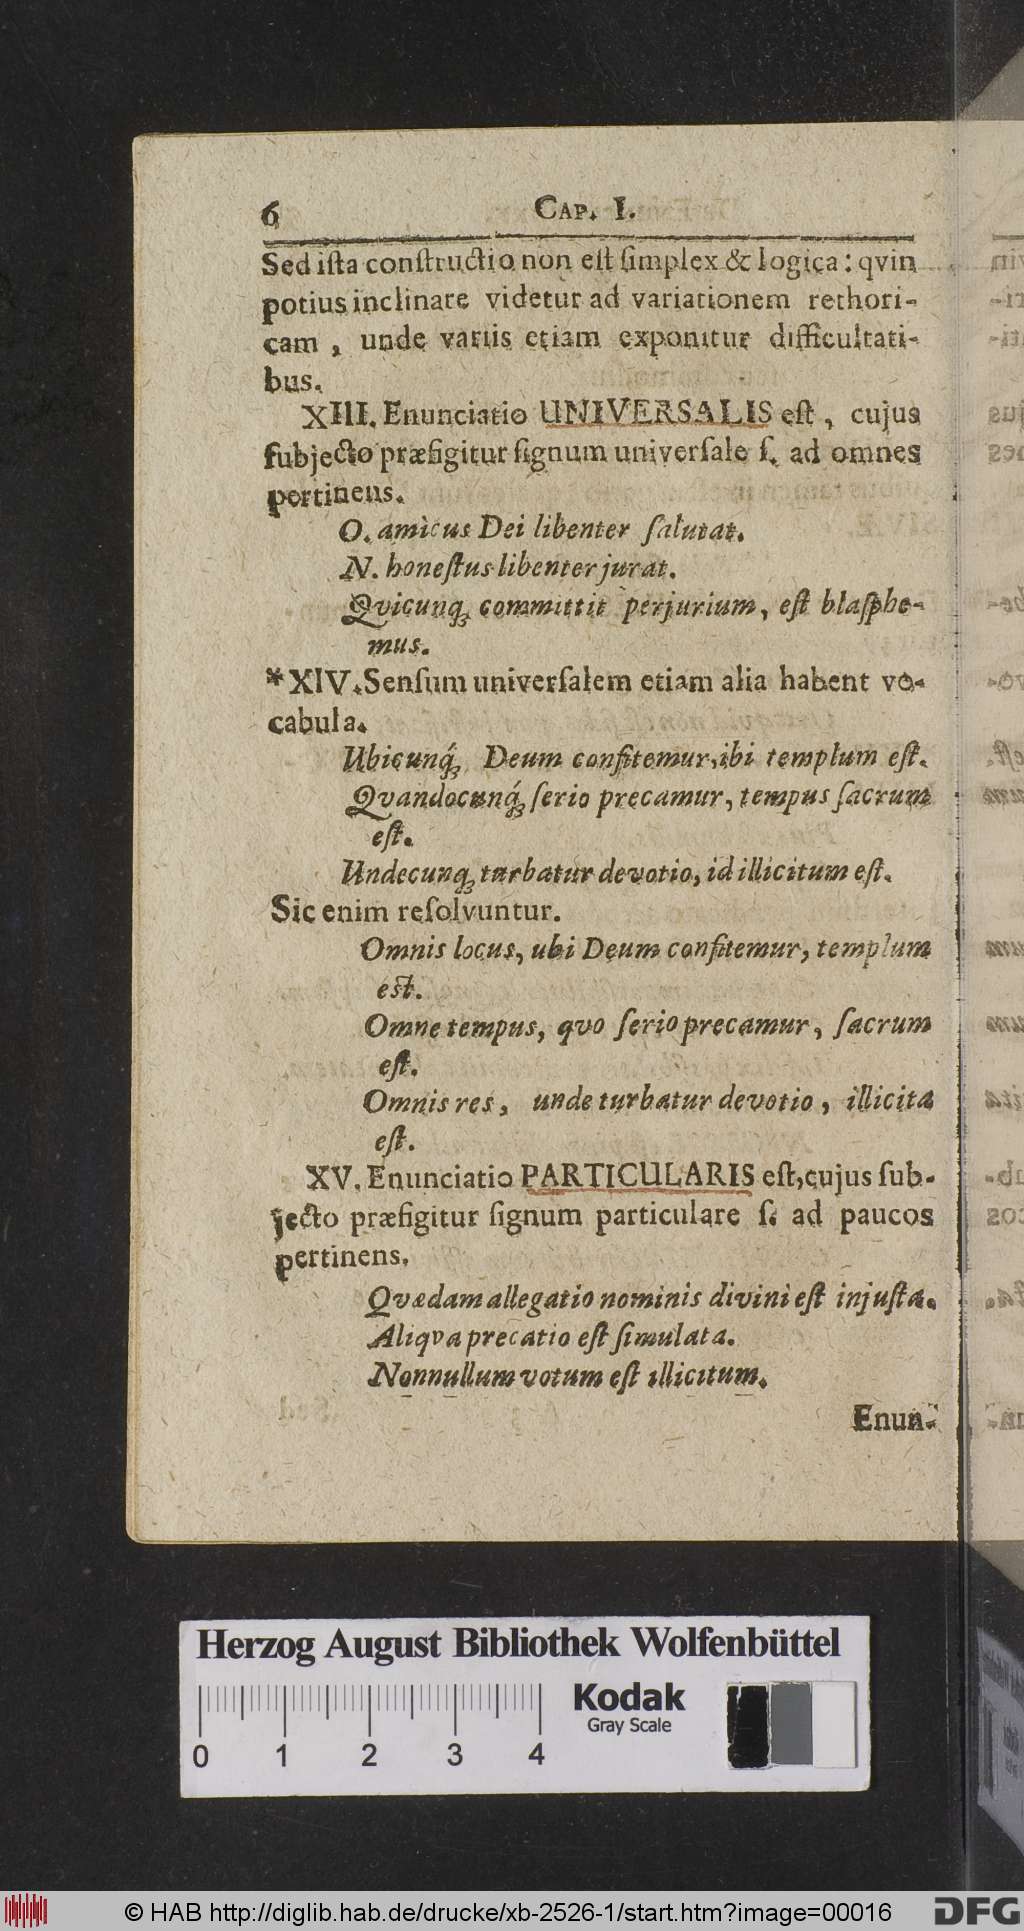 6 CAP. I.
Sed iſta conſtructio non eſt ſimplex & logica: qvin
potius inclinare videtur ad variationem rethori-
cam, unde variis etiam exponitur difficultati-
bus.
XIII. Enunciatio UNIVERSALIS eſt, cujus
ſubjecto præfigitur ſignum univerſale ſ. ad omnes
pertinens.
O. amicus Dei libenter ſalutat.
N. honeſtus libenter jurat.
Qvicunq́; committit perjurium, eſt blaſphe-
mus.
*XIV. Senſum univerſalem etiam alia habent vo-
cabula.
Ubicunq́; Deum confitemur, ibi templum eſt.
Qvandocunq́; ſerio precamur, tempus ſacrum
eſt.
Undecunq; turbatur devotio, id illicitum eſt.
Sic enim reſolvuntur.
Omnis locus, ubi Deum confitemur, templum
eſt.
Omne tempus, qvo ſerio precamur, ſacrum
eſt.
Omnis res, unde turbatur devotio, illicita
eſt.
XV. Enunciatio PARTICULARIS eſt, cujus ſub-
jecto præfigitur ſignum particulare ſ. ad paucos
pertinens.
Qvædam allegatio nominis divini eſt injuſta.
Aliqva precatio eſt ſimulata.
Nonnullum votum eſt illicitum.
Enun-
Herzog August Bibliothek Wolfenbüttel
Kodak
Gray Scale
0 1 2 3 4
© HAB http://diglib.hab.de/drucke/xb-2526-1/start.htm?image=00016
DFG